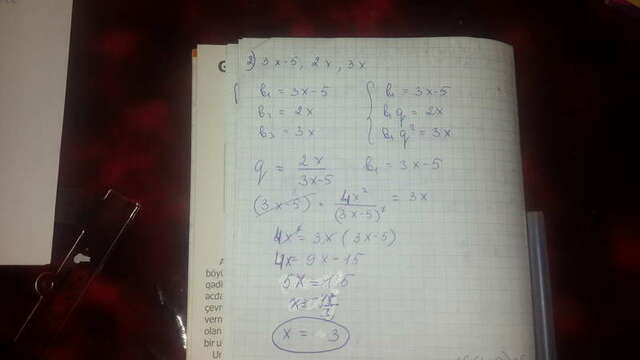 2) 3x-5, 2x, 3x
b₁ = 3x-5
b₂ = 2x
b₃ = 3x
b₁ = 3x-5
b₁q = 2x
b₁q² = 3x
q = 2x/(3x-5) b₁ = 3x-5
(3x-5) · 4x²/(3x-5)² = 3x
4x² = 3x (3x-5)
4x = 9x-15
5x = 15
x = 3
böyü
qədi
çevr
olan
bir u
Ur